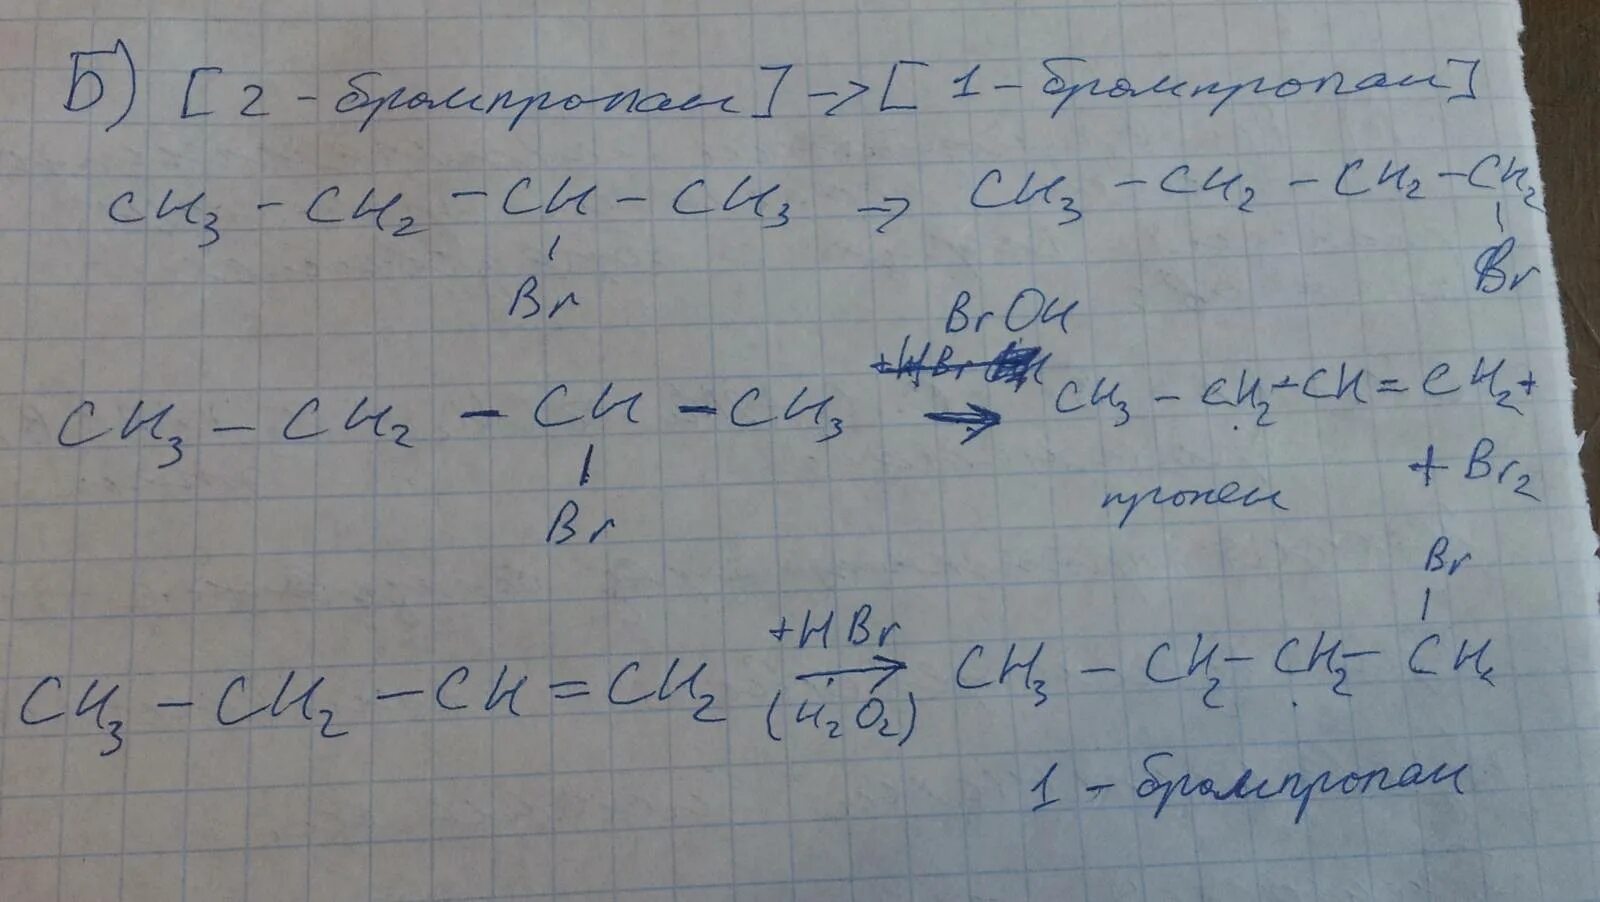 Б) [2-бромпропан] → [1-бромпропан]
CH3 – CH2 – CH – CH3 → CH3 – CH2 – CH2 – CH2
Br Br
BrOH
CH3 – CH2 – CH – CH3 → CH3 – CH2 – CH = CH2 +
Br
+ Br2
пропен
Br
CH3 – CH2 – CH = CH2 +HBr → (H2O2) CH3 – CH2 – CH2 – CH2
1 – бромпропан